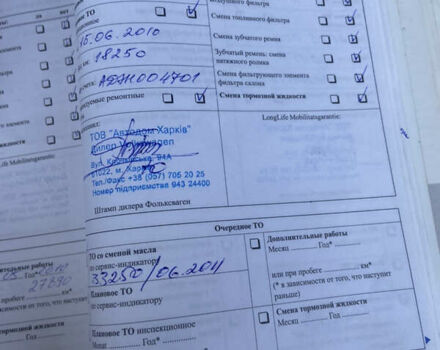 ТО
15.06.2010
18250
АДАН004701
ремонтные
ТОВ "Автодом Харків"
Дилер Фольксваген
94А
61022, м. Харків
Тел./Факс +38 (057) 705 20 25
Номер підприємства 943 24400
Штамп дилера Фольксваген
воздушного фильтра
Смена топливного фильтра
Смена зубчатого ремня
Зубчатый ремень: смена
натяжного ролика
Смена фильтрующего элемента
фильтра салона
Смена тормозной жидкости
LongLife Mobilitatsgarantie:
да нет
Mobilitatsgarantie:
Очередное ТО
ТО со сменой масла
по сервис-индикатору
33250/06.2011
Плановое ТО
по сервис-индикатору
Плановое ТО инспекционное
Месяц Год*
Дополнительные работы
Месяц Год*
или при пробеге км*
(* в зависимости от того, что наступит
раньше)
Смена тормозной жидкости
Месяц Год
работы
Год*
27690
км*
от того, что наступит
тормозной жидкости
Год